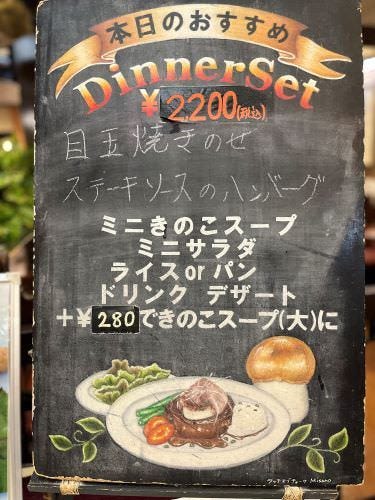 本日のおすすめ
DinnerSet
¥2,200(税込)
目玉焼きのせ
ステーキソースのハンバーグ
ミニきのこスープ
ミニサラダ
ライスorパン
ドリンク デザート
+¥280できのこスープ(大)に